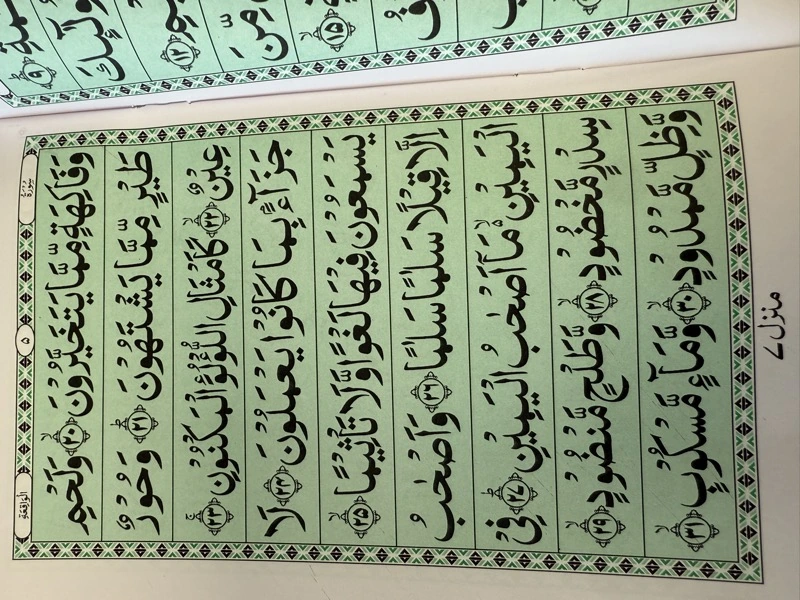 الواقعة ٥
وَفَاكِهَةٍ مِّمَّا يَتَخَيَّرُوْنَ ﴿٢٠﴾ وَلَحْمِ
طَيْرٍ مِّمَّا يَشْتَهُوْنَ ﴿٢١﴾ وَحُوْرٌ
عِيْنٌ ﴿٢٢﴾ كَاَمْثَالِ اللُّؤْلُؤِ الْمَكْنُوْنِ ﴿٢٣﴾
جَزَآءًۢ بِمَا كَانُوْا يَعْمَلُوْنَ ﴿٢٤﴾ لَا
يَسْمَعُوْنَ فِيْهَا لَغْوًا وَّلَا تَاْثِيْمًا ﴿٢٥﴾
اِلَّا قِيْلًا سَلٰمًا سَلٰمًا ﴿٢٦﴾ وَاَصْحٰبُ
الْيَمِيْنِ مَآ اَصْحٰبُ الْيَمِيْنِ ﴿٢٧﴾ فِيْ
سِدْرٍ مَّخْضُوْدٍ ﴿٢٨﴾ وَّطَلْحٍ مَّنْضُوْدٍ ﴿٢٩﴾
وَّظِلٍّ مَّمْدُوْدٍ ﴿٣٠﴾ وَّمَآءٍ مَّسْكُوْبٍ ﴿٣١﴾
منزل ٧